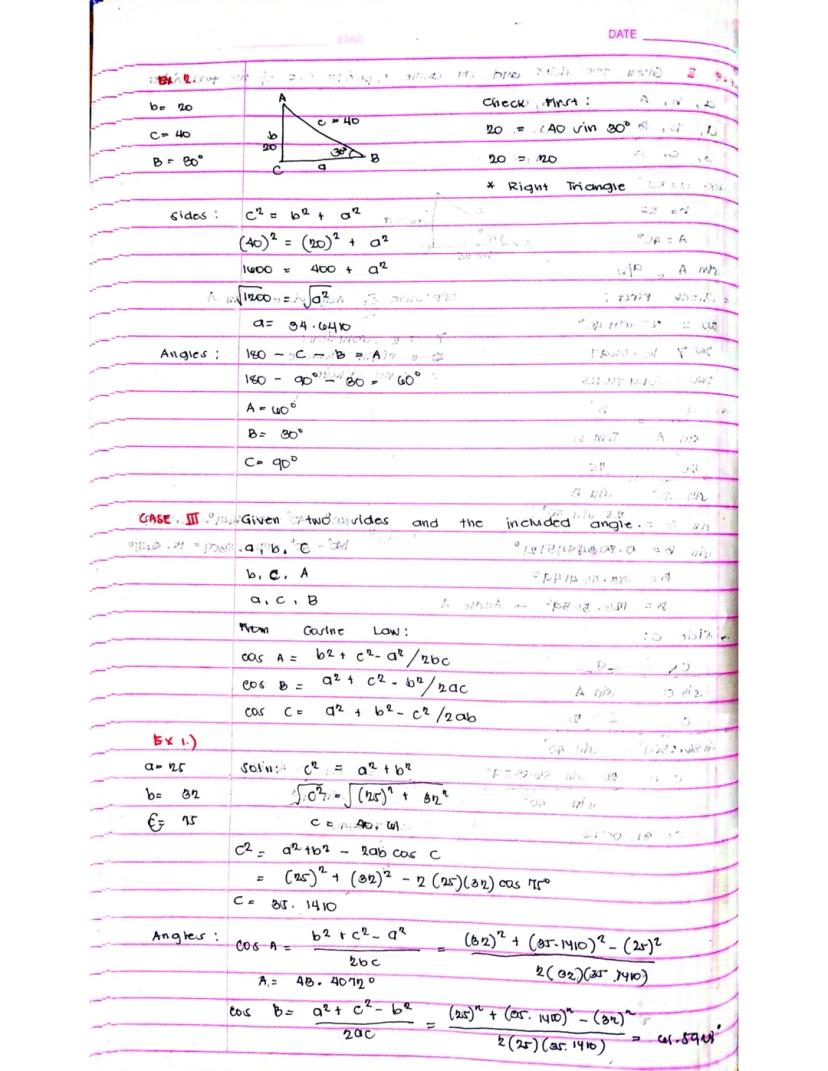 DATE
Ex 2.
b= 20
c= 40
B= 30°
A
c = 40
b
20
30°
B
C
a
Check First:
20 = 40 sin 30°
20 = 20
* Right Triangle
Sides: c² = b² + a²
(40)² = (20)² + a²
1600 = 400 + a²
√1200 = √a²
a= 34.6410
Angles: 180 - C - B = A
180 - 90° - 30 = 60°
A = 60°
B= 30°
C= 90°
CASE. III Given two sides and the included angle.
a, b, C
b, c, A
a, c, B
From Cosine Law:
cos A = b² + c² - a²/2bc
cos B = a² + c² - b²/2ac
cos C= a² + b² - c²/2ab
Ex 1.)
a= 25
b= 32
C= 75
Sol'n: c² = a² + b²
√c² = √(25)² + 32²
c = 40.61
c² = a² + b² - 2ab cos C
= (25)² + (32)² - 2 (25)(32) cos 75°
c = 35.1410
Angles: cos A = b² + c² - a² / 2bc = (32)² + (35.1410)² - (25)² / 2(32)(35.1410)
A = 43.4072°
cos B= a² + c² - b² / 2ac = (25)² + (35.1410)² - (32)² / 2(25)(35.1410) =